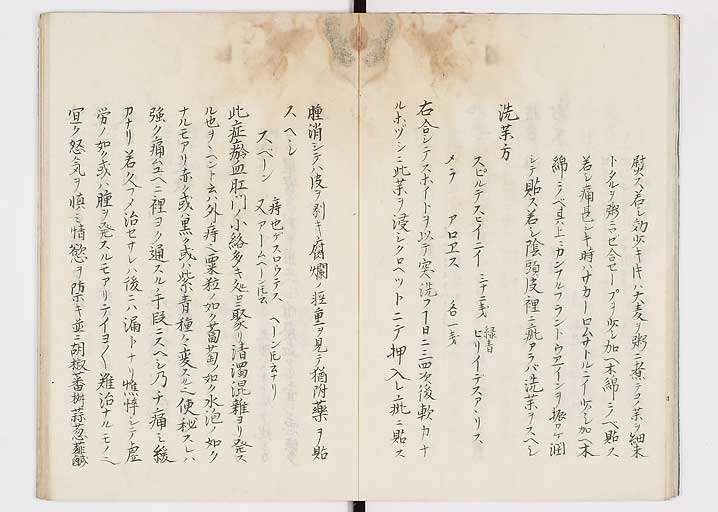 熨ス若シ効少キ片ハ大麦ヲ粥ニ煮テコノ茶ヲ細末
トタルヲ粥ニコゼ合セーブヲ少シ加ヘ木綿ニノベ貼ス
若シ痛甚シキ時ハサカーロムサトルニイ少シ加ヘ木
綿ニノベ其上ニカンフルブラントウエインヲ振カケ潤
シテ貼ス若シ陰頭皮裡ニ疵アラバ洗茶ヲスヘシ
洗茶方
スピルテスヒイニイ 三十二戔 緑青 ヒリイデスアンリス
メラ アロエス 各一戔
右合シテスホイトヲ以テ実洗フ1日二三四次後軟カナ
ルホヅシニ此茶ヲ浸シクロヘットニテ押入レ疵ニ貼ス
腫消シテハ皮ヲ剥キ腐爛ノ軽重ヲ見テ猶附藥ヲ貼
スヘシ
スペーン 痔也ゲスロウテス ヘーン氏云ナリ 又アームヘーン氏云
此症瘀血肛門ノ小絡多キ処ニ聚リ清濁混雑ヨリ発ス
ル也ヲヘント云ハ外ノ痔ハ粟粒ノ如ク葡萄ノ如ク水泡ノ如ク
ナルモアリ赤ク或ハ黒ク或ハ紫青種々変スル也便秘スレハ
強ク痛ムユヘニ裡ヨク通スル手段ニスヘシ乃ハチ痛ミ緩
カナリ若久フメ治セサレハ後ニハ漏トナリ憔悴シテ虚
労ノ如ク或ハ腫ヲ発スルモアリテイヨイヨ難治ナルモノ也
宜ク怒気ヲ慎ミ情慾ヲ禁キ並ニ胡椒蕃椒蒜葱薤鹹